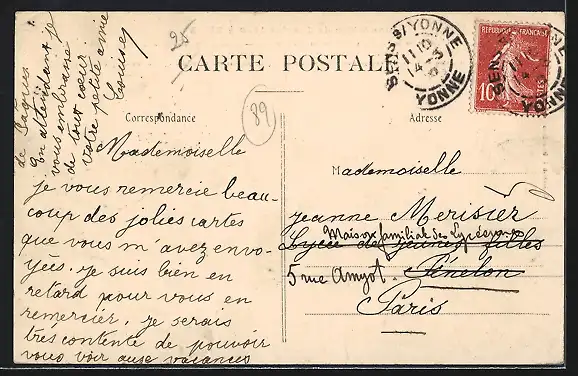 25
CARTE POSTALE
SENS S/YONNE
YONNE
REPUBLIQUE FRANÇAISE
10
POSTES
89
Correspondance
Adresse
Mademoiselle
je vous remercie beau-
coup des jolies cartes
que vous m'avez envo-
yées. je suis bien en
retard pour vous en
remercier, je serais
très contente de pouvoir
vous voir aux vacances
de Paques
En attendant je
vous embrasse
de tout coeur
Votre petite amie
Mademoiselle
Jeanne Merisier
Maison familiale des
Lycée de jeunes filles
5 rue Amyot. Fénelon
Paris